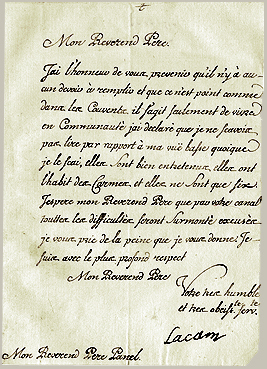 Mon Reverend Père.
J'ai l'honneur de vous prevenir qu'il n'y à au-
cun devoir à remplir et que ce n'est point comme
dans les Couvents, il s'agit seulement de vivre
en Communauté j'ai declaré que je ne scavois
pas lire par rapport à ma vüe basse quoique
je le scai, elles Sont bien entretenues, elles ont
l'habit des Carmes, et elles ne Sont que
J'espere mon Reverend Père que par votre canal
toutes les difficultés seront Surmonté
je vous prie de la peine que je vous donne. Je
suis avec le plus profond respect
Mon Reverend Père
Votre tres humble
et tres obéiss.te Serv.te
Lacam
Mon Reverend Père Panel.